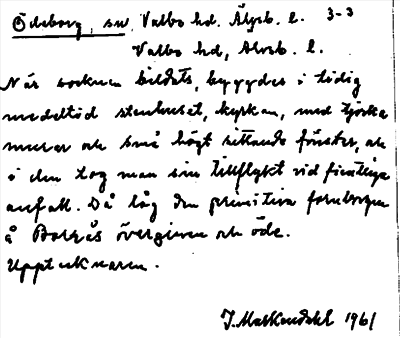 Ödeborg, sn, Valbo hd. Älvsb. l. 3-3
Valbo hd, Älvsb. l.
När socknen bildats, byggdes i tidig
medeltid stenhuset, kyrkan, med tjocka
murar och små högt sittande fönster, och
i den tog man sin tillflykt vid fientliga
anfall. Då låg den primitiva fornborgen
å Borgås övergiven och öde.
Upptecknaren.
J. Markendahl 1961